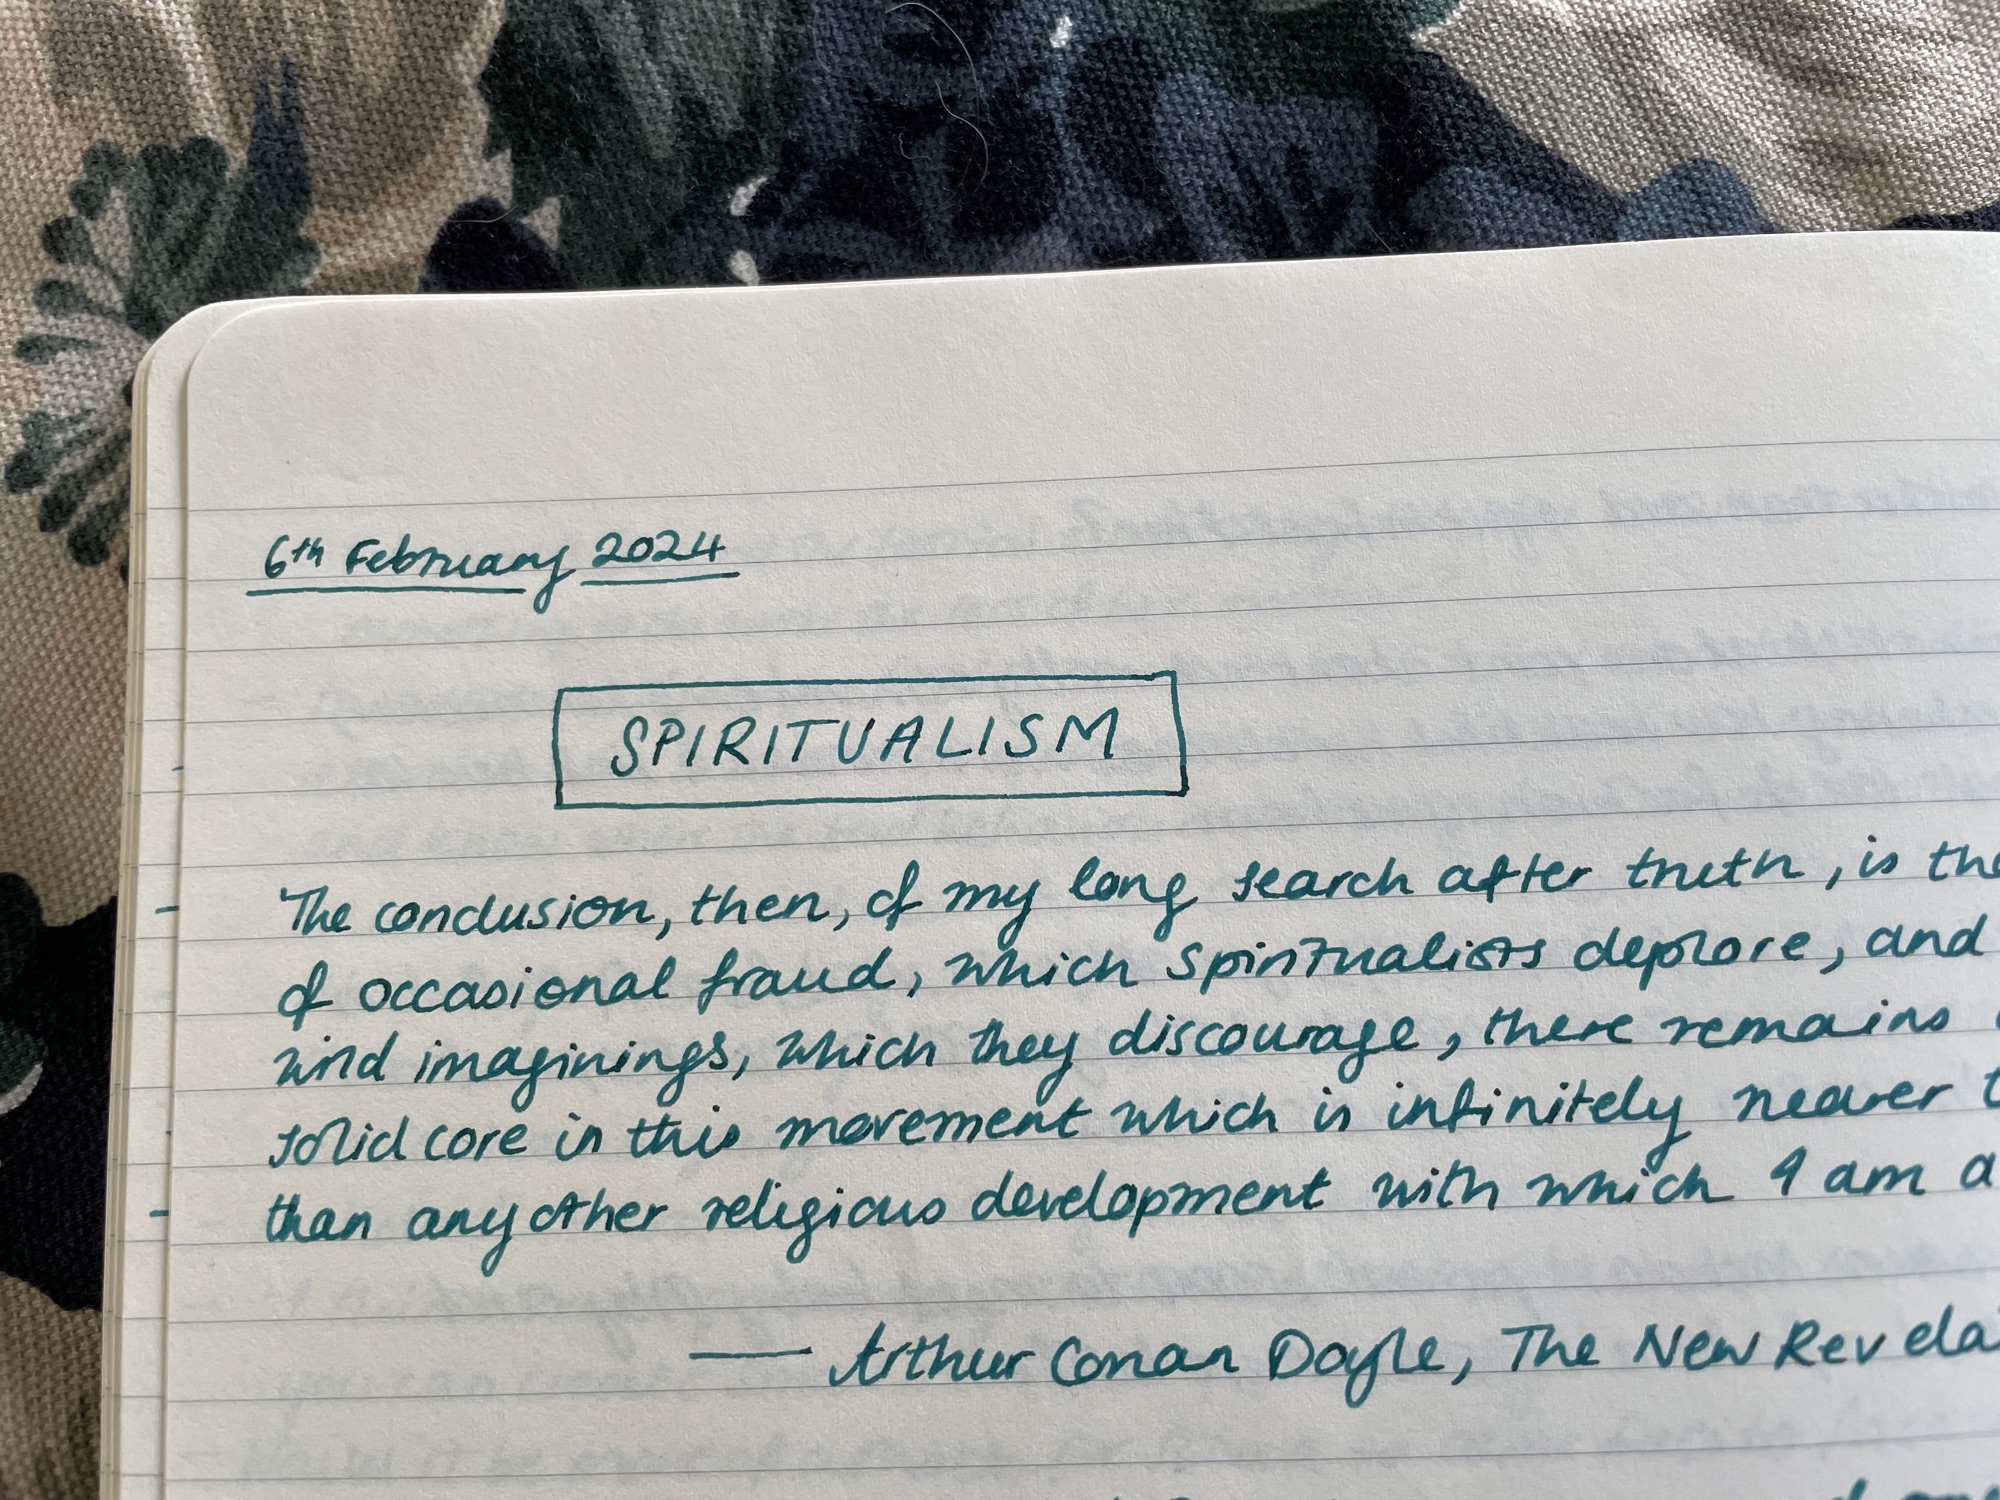 6th February 2024
SPIRITUALISM
The conclusion, then, of my long search after truth, is the
of occasional fraud, which Spiritualists deplore, and
wild imaginings, which they discourage, there remains
solid core in this movement which is infinitely nearer t
than any other religious development with which I am a
— Arthur Conan Doyle, The New Revela